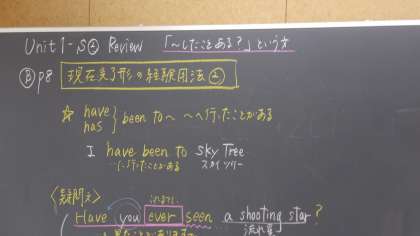 Unit1-S② Review 「～したことある？」という文
Ⓑp8 現在完了形の経験用法②
☆ have
has } been to～ ～へ行ったことがある
I have been to sky Tree
(～に行ったことがある スカイツリー
〈疑問文〉 これまでに
Have you ever seen a shooting star?
流れ星